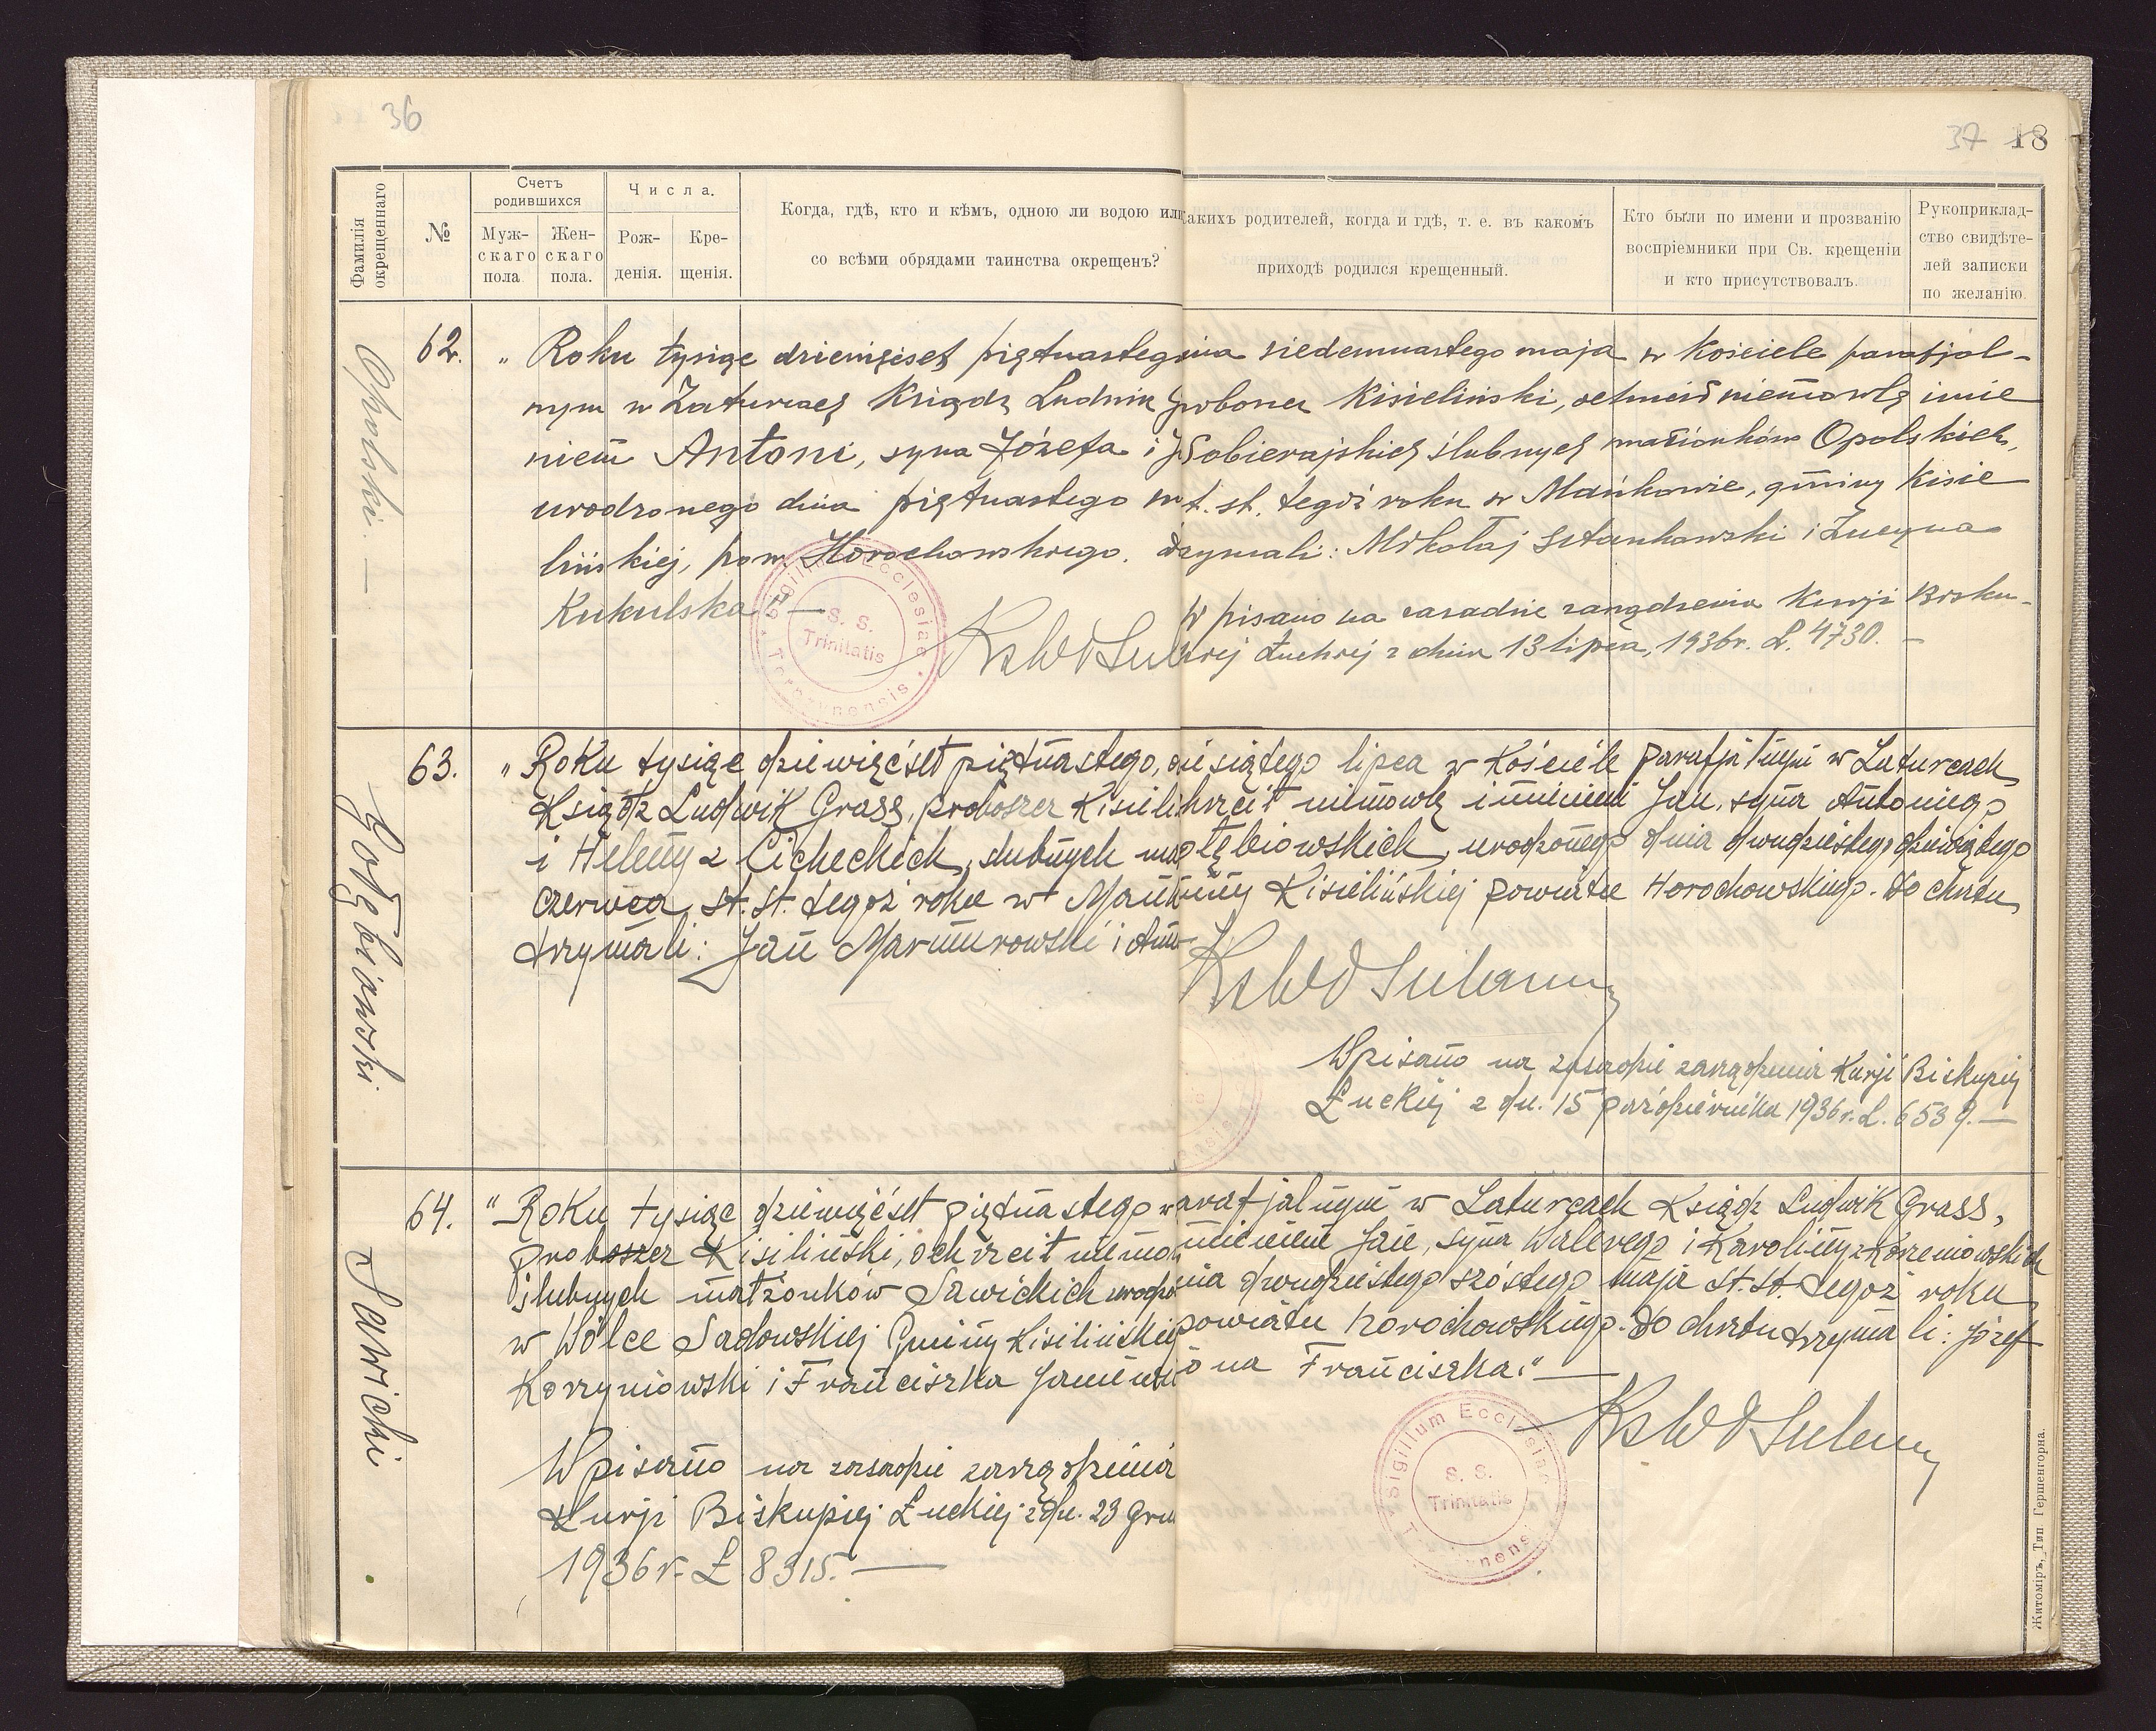 36
37 18
Фамилія окрещеннаго
№
Счетъ родившихся
Муж-скаго пола
Жен-скаго пола.
Числа.
Рож-денія.
Кре-щенія.
Когда, гдѣ, кто и кѣмъ, одною ли водою или
со всѣми обрядами таинства окрещенъ?
акихъ родителей, когда и гдѣ, т. е. въ какомъ
приходѣ родился крещенный.
Кто были по имени и прозванію
воспріемники при Св. крещеніи
и кто присутствовалъ.
Рукоприклад-
ство свидѣте-
лей записки
по желанію.
Opolski. —
62. „ Roku tysiąc dziewięćset piętnastego siedemnastego maja w Kościele parafjal-
nym w Zaturcach Ksiądz Ludwik proboszcz Kisieliński, ochrzcił niemowlę imie
niem Antoni, syna Józefa i Sobierajskich ślubnych małżonków Opolskich,
urodzonego dnia piętnastego st. st. tegoż roku w Mańkowie, gminy Kisie
lińskiej, pow. Horochowskiego. trzymali: Mikołaj Stankowski i Lucyna
Kukulska" —
Wpisano na zasadzie zarządzenia Kurji Bisku-
Łuckiej z dnia 13 lipca, 1936r. L. 4730. —
Sigillum Ecclesiae S. S. Trinitatis Torczynensis
Gołębiowski
63. „ Roku tysiąc dziewięćset piętnastego, lipca w Kościele parafjalnym w Zaturcach
Ksiądz Ludwik Grass, proboszcz niemowlę imieniem Jan, syna Antoniego
i Heleny z Cicheckich, ślubnych urodzonego dnia dwudziestego dziewiątego
czerwca st. st. tegoż roku w Kisielińskiej powiatu Horochowskiego. Do chrztu
trzymali: Jan Marmurowski i
Wpisano na zasadzie zarządzenia Kurji Biskupiej
Łuckiej z dn. 15 października 1936r. L. 6539. —
Sawicki
64. „ Roku tysiąc dziewięćset piętnastego w arafjalnym w Zaturcach Ksiądz Ludwik Grass,
proboszcz Kisieliński, ochrzcił Jan, syna Walerego i Karoliny z Korzeniowskich
ślubnych małżonków Sawickich dwudziestego szóstego maja st. st. tegoż roku
w Wólce Sadowskiej Gminy Kisielińskiej powiatu horochowskiego. Do chrztu trzymali: Józef
Korzyniowski i Franciszka żona Franciszka." —
Wpisano na zasadzie zarządzenia
Kurji Biskupiej Łuckiej z dn. 23 gru
1936r. L 8315. —
Sigillum Ecclesiae S. S. Trinitatis
Житоміръ, Тип. Гершенгорна.